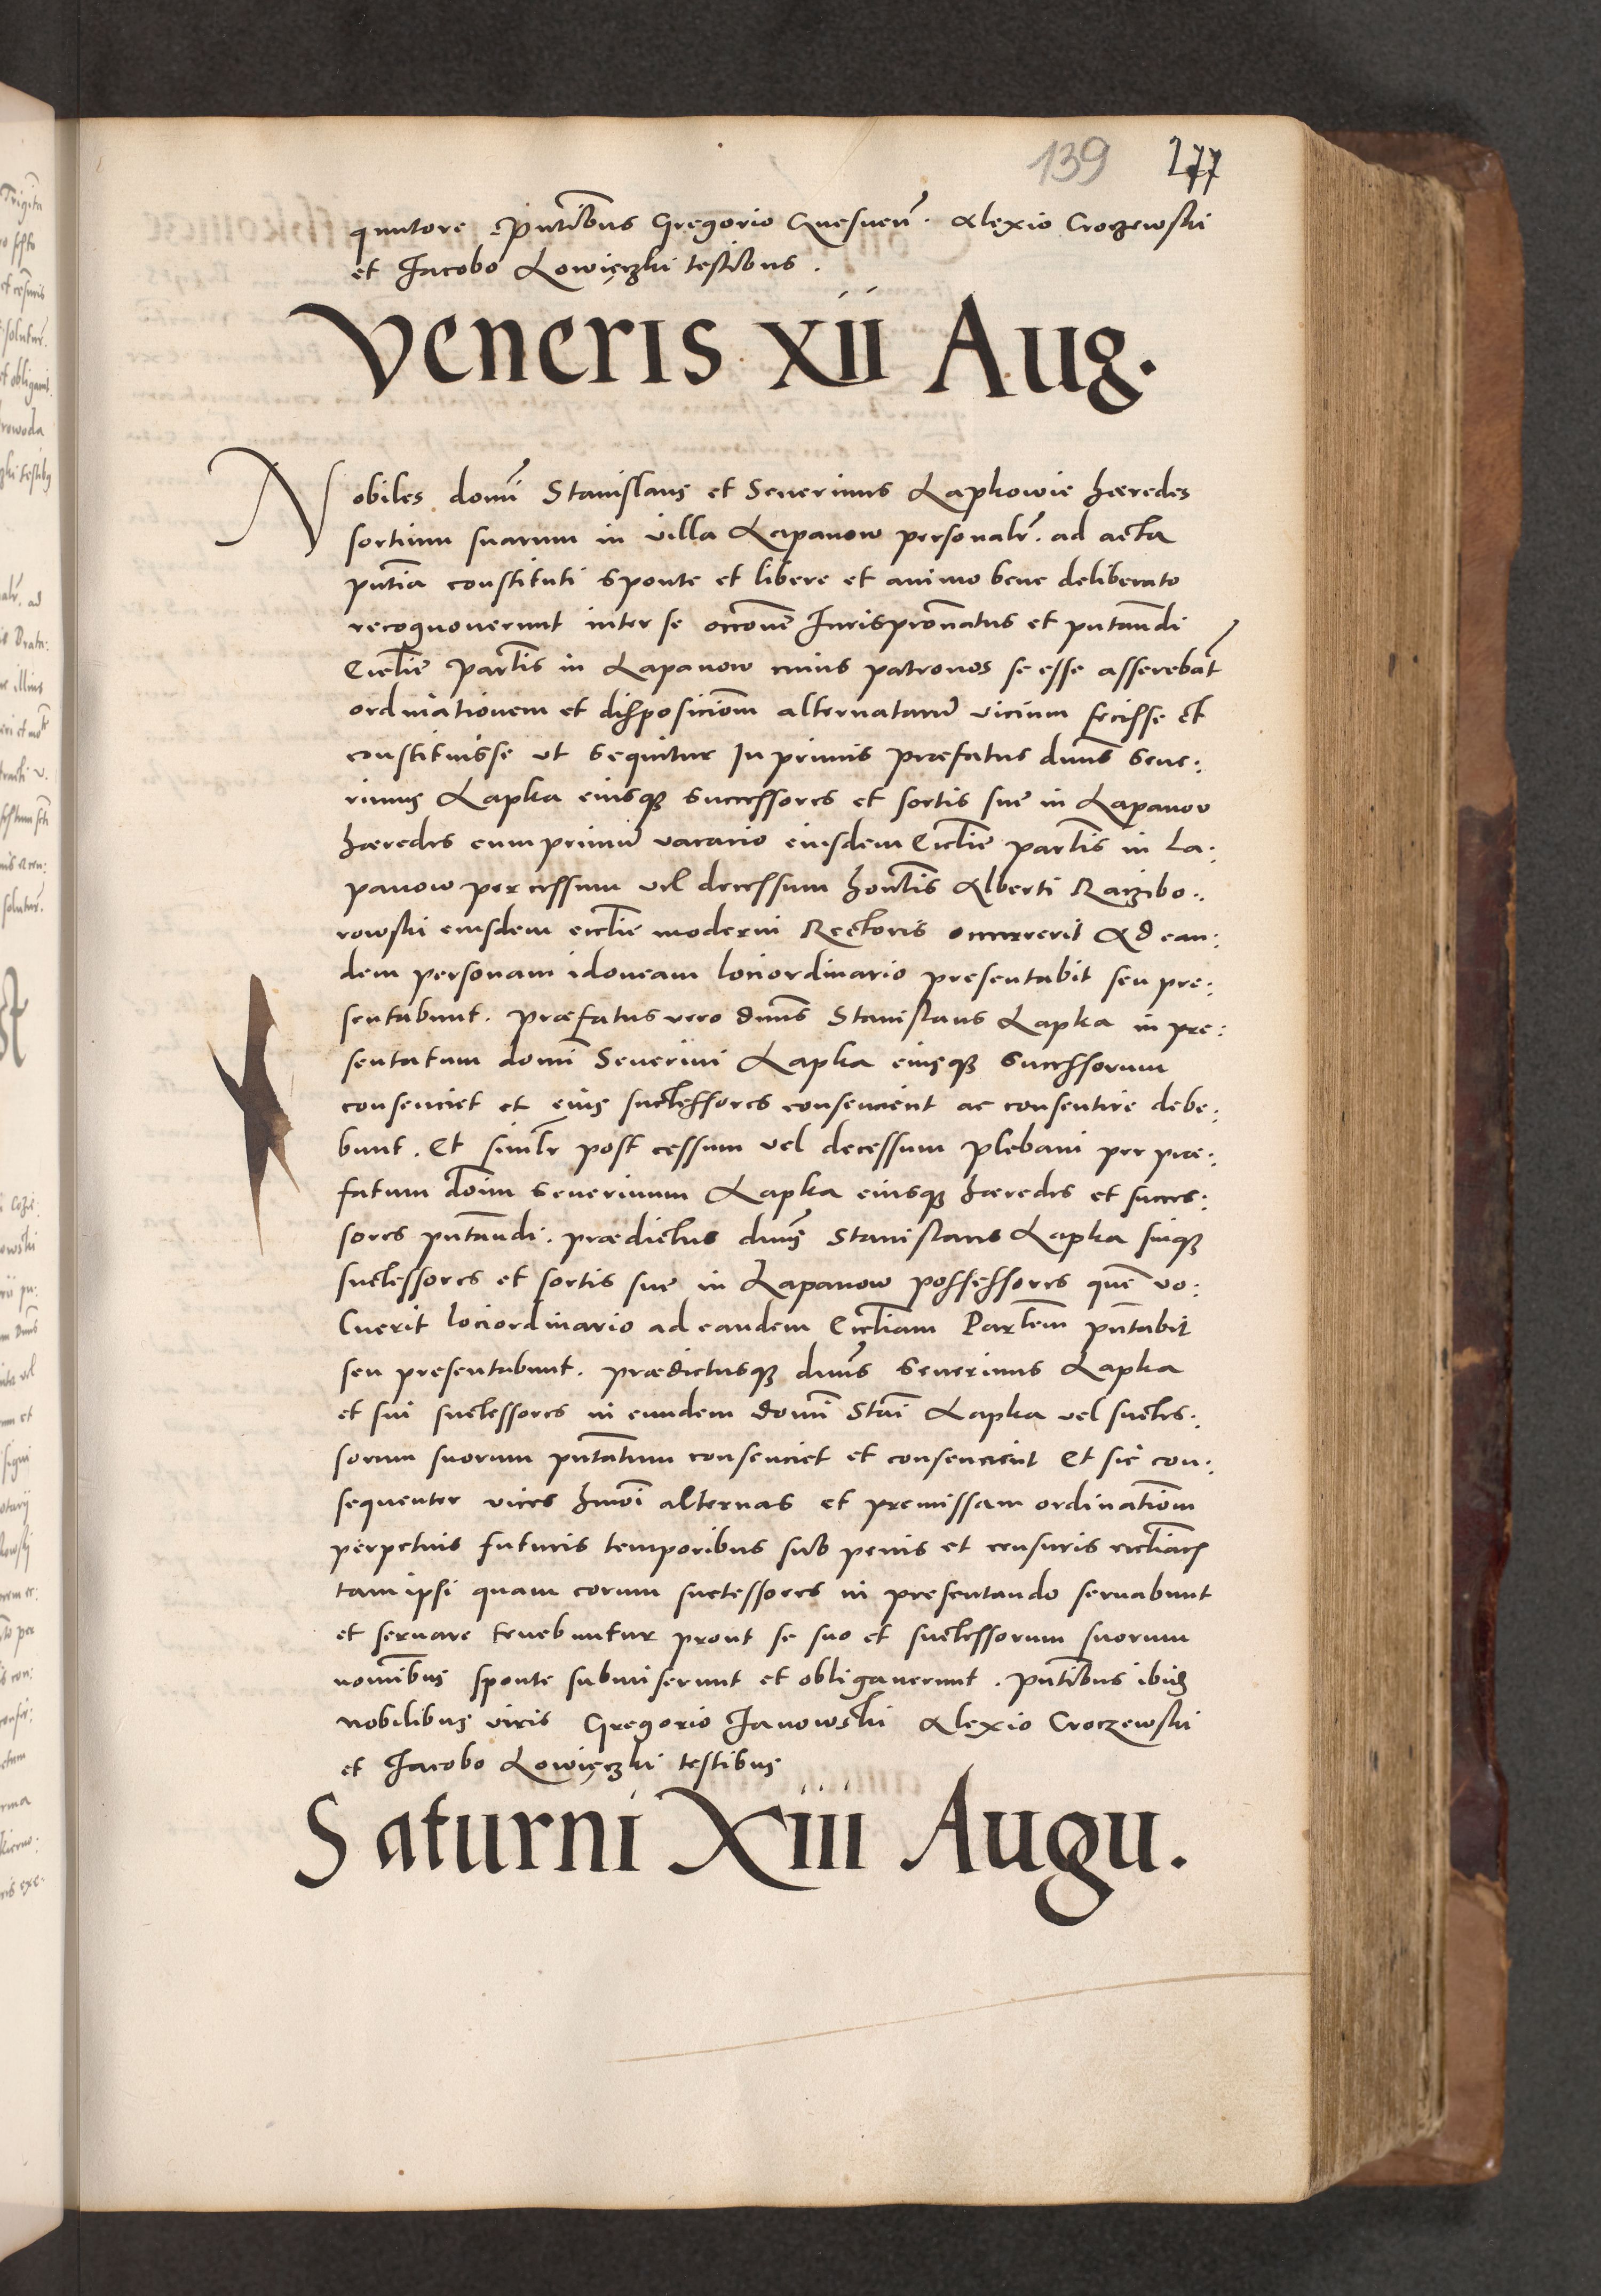 139 277
quutore pñtibus Gregorio Gnesnen̄. Alexio Croczewski
et Jacobo Lowięczki testibus.
Veneris xii Aug.
Nobiles domī Stanislaus et Seuerinus Lapkowie hæredes
sortium suarum in villa Lapanow personalr̄. ad acta
pñtia constituti sponte et libere et animo bene deliberato
recognouerunt inter se occōne Jurispronāatus et pñtandi
Ecclie Partlis in Lapanow cuius patronos se esse asserebāt
ordinationem et dispositiom alternatarū vicium fecisse et
constituisse vt sequitur In primis præfatus dnūs Seue:
rinus Lapka eiusq successores et sortis sue in Lapanow
hæredes cum primū vacacio eiusdem Ecclie partlis in La:
panow per cessum vel decessum honēlis Alberti Raczibo:
rowski eiusdem ecclie moderni Rectoris occurrerit Ad ean:
dem personam idoneam lociordinario presentabit seu pre:
sentabunt. Præfatus vero dnūs Stanislaus Lapka in pre:
sentatum domī Seuerini Lapka eiusq successorum
consenciet et eius successores consencient ac consentire debe:
bunt. Et similr̄ post cessum vel decessum plebani per præ:
fatum doīm Seuerinum Lapka eiusq hæredes et succes:
sores pñtandi. prædictus dnūs Stanislaus Lapka suiq
successores et sortis sue in Lapanow possessores quē vo:
luerit lociordinario ad eandem Eccliam Partlem pñtabit
seu presentabunt. prædictusq dnūs Seuerinus Lapka
et sui successores in eundem domī Stāi Lapka vel succes:
sorum suorum pñtatum consenciet et consencient Et sic con:
sequenter vices hmōi alternas et premissam ordinatiōm
perpetuis futuris temporibus sub penis et censuris
tam ipsi quam eorum successores in presentando seruabunt
et seruare tenebuntur prout se suo et successorum suorum
nomībus sponte submiserunt et obligauerunt. pñtibus ibid
nobilibus viris Gregorio Janowski Alexio Croczewski
et Jacobo Lowięczki testibus
Saturni Xiii Augu.